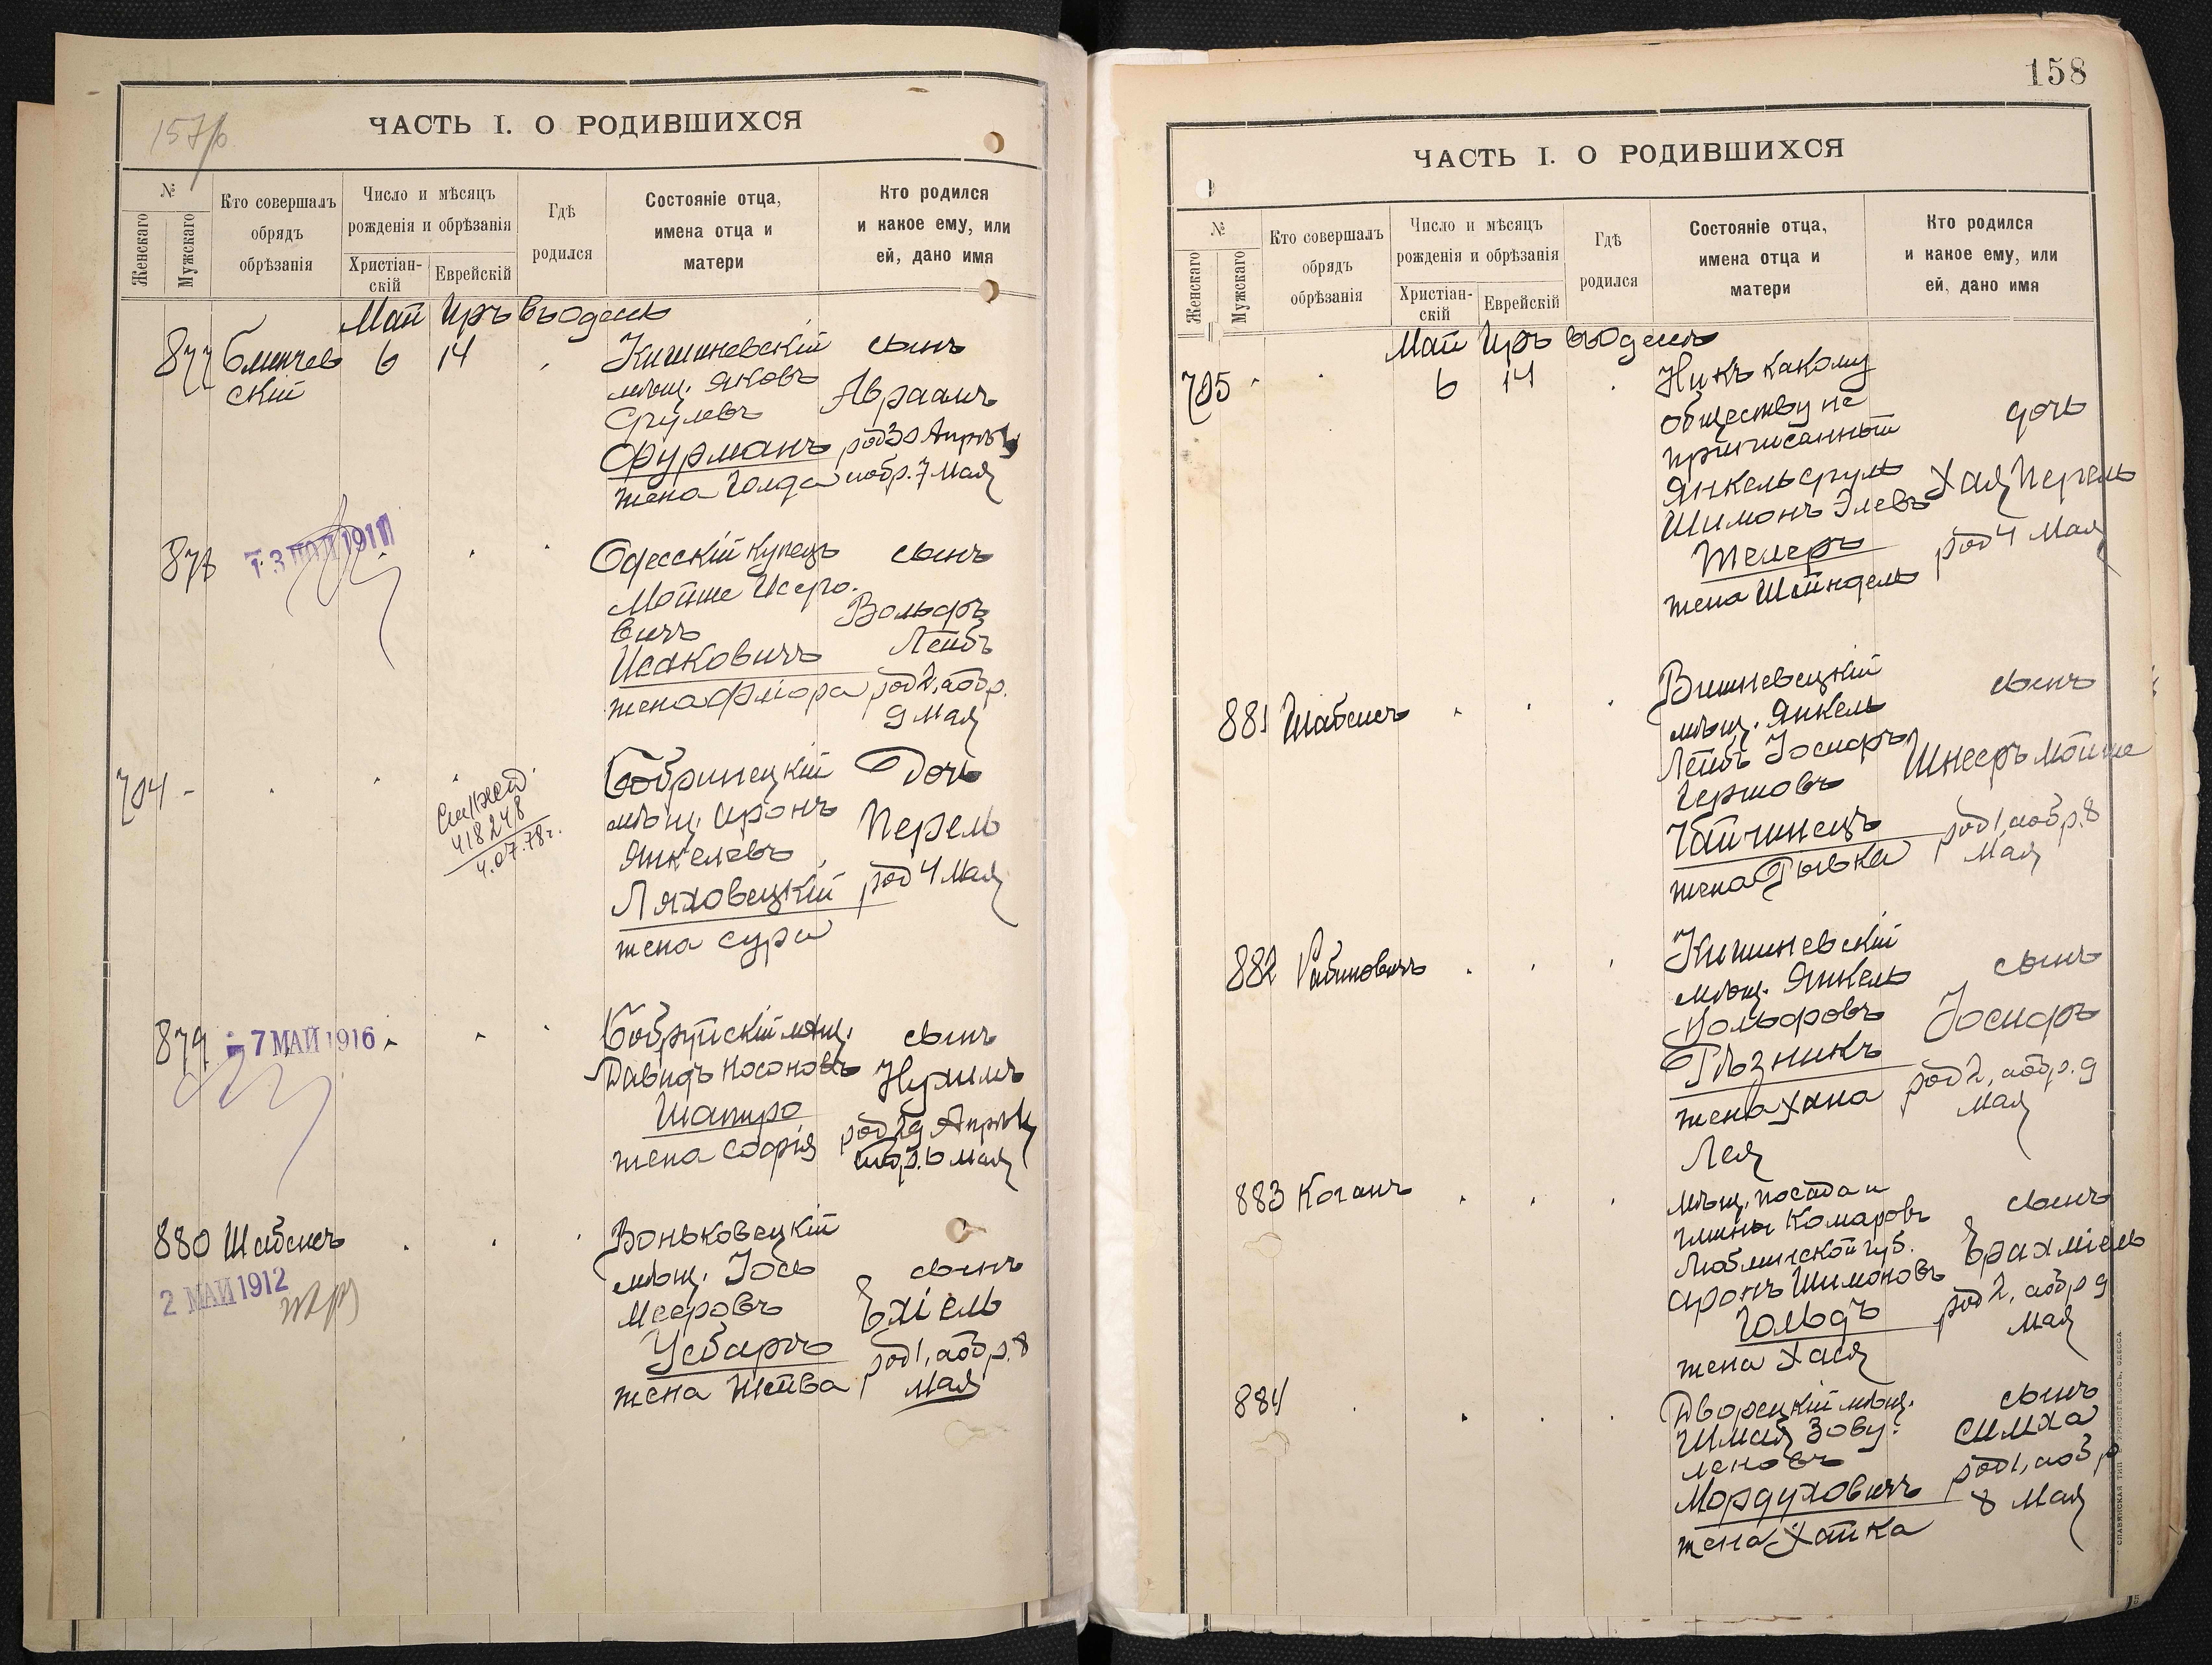 157/б
ЧАСТЬ I. О РОДИВШИХСЯ
№
Женскаго
Мужскаго
Кто совершалъ
обрядъ
обрѣзанія
Число и мѣсяцъ
рожденія и обрѣзанія
Христіан-
скій
Еврейскій
Гдѣ
родился
Состояніе отца,
имена отца и
матери
Кто родился
и какое ему, или
ей, дано имя
Май Иръ въ Одессѣ
877 Блинчев
ский 6 14
Кишиневскій
мѣщ. Яковъ
Срулевъ
Фурманъ
жена Голда
сынъ
Авраамъ
род 30 Апрѣля
и обр. 7 Мая
878
1911
Одесскій купецъ
Мойше Исеро-
вичъ
Исаковичъ
жена Флора
сынъ
Вольфъ
Лейбъ
род 2, и обр.
9 Мая
704
418248
4.07.78г.
Бобринецкій
мѣщ. Аронъ
Янкелевъ
Ляховецкій
жена Сура
Дочь
Перель
род 4 Мая
879
7 МАЙ 1916
Бобруйскій мѣщ.
Давидъ Носоновъ
Шапиро
жена Софія
сынъ
Нухимъ
род 29 Апрѣля
и обр. 6 Мая
880 Шабсисъ
2 МАЙ 1912
Воньковецкій
мѣщ. Іось
Мееровъ
Усбаръ
жена Шейва
сынъ
Ѣхіель
род 1, и обр. 8
Мая
158
ЧАСТЬ I. О РОДИВШИХСЯ
№
Женскаго
Мужскаго
Кто совершалъ
обрядъ
обрѣзанія
Число и мѣсяцъ
рожденія и обрѣзанія
Христіан-
скій
Еврейскій
Гдѣ
родился
Состояніе отца,
имена отца и
матери
Кто родился
и какое ему, или
ей, дано имя
Май Иръ въ Одессѣ
705 6 14
Ни къ какому
обществу не
приписанный
Янкель Сруль
Шимонъ Элевъ
Телеръ
жена Шейндель
дочь
Хая Перель
род 4 Мая
881 Шабсисъ
Вишневецкій
мѣщ. Янкель
Лейбъ Іосифъ
Гершовъ
Чайчинецъ
жена Рывка
сынъ
Шнееръ Мойше
род 1, и обр. 8
Мая
882 Рабиновичъ
Кишиневскій
мѣщ. Янкель
Вольфовъ
Рѣзникъ
жена Хана
Лея
сынъ
Іосифъ
род 2, и обр. 9
Мая
883 Коганъ
мѣщ. посада и
гмины Комаровъ
Люблинской губ.
Аронъ Шимоновъ
Гольдъ
жена Хася
сынъ
Ѣрахміель
род 2, и обр 9
Мая
884
Дворецкій мѣщ.
Шмая Зову-
леновъ
Мордуховичъ
жена Хайка
сынъ
Симха
род 1, и обр
8 Мая